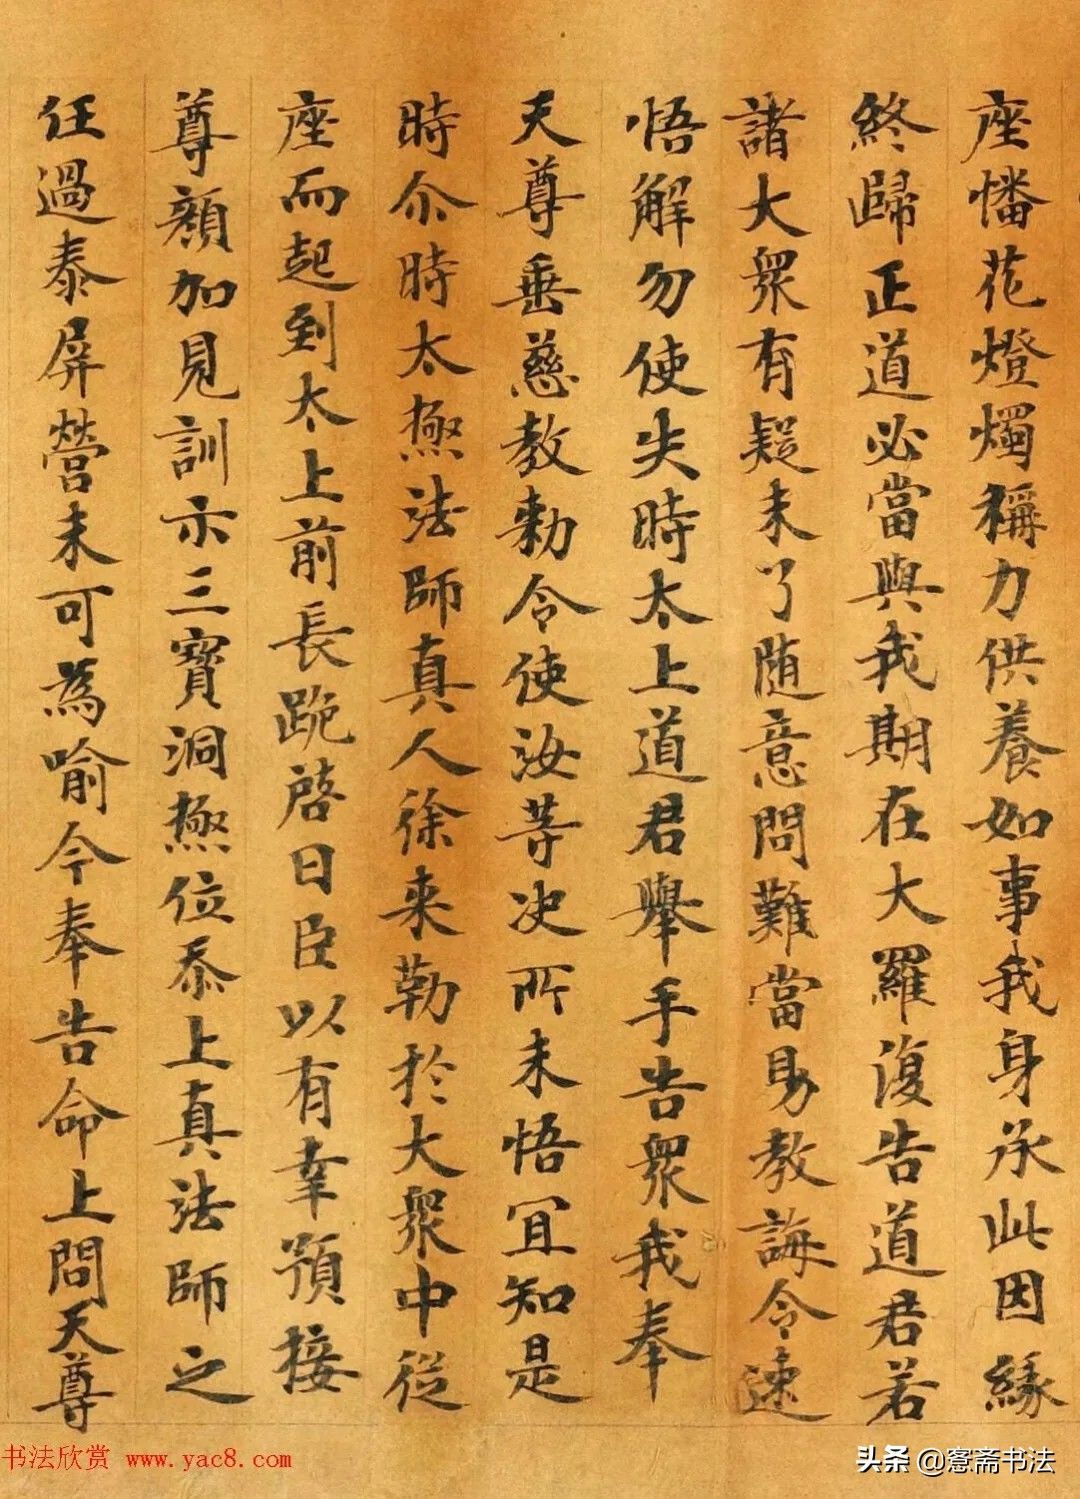 座幡花燈燭稱力供養如事我身承此因緣
終歸正道必當與我期在大羅復告道君若
諸大衆有疑未了随意問難當為教誨令速
悟解勿使失時太上道君舉手告衆我奉
天尊垂慈教勅令使汝等决所未悟宜知是
時尒時太極法師真人徐来勒於大衆中從
座而起到太上前長跪啓曰臣以有幸預接
尊顔加見訓示三寶洞極位泰上真法師之
任過泰屏營未可為喻今奉告命上問天尊
书法欣赏 www.yac8.com
头条 @蹇斋书法